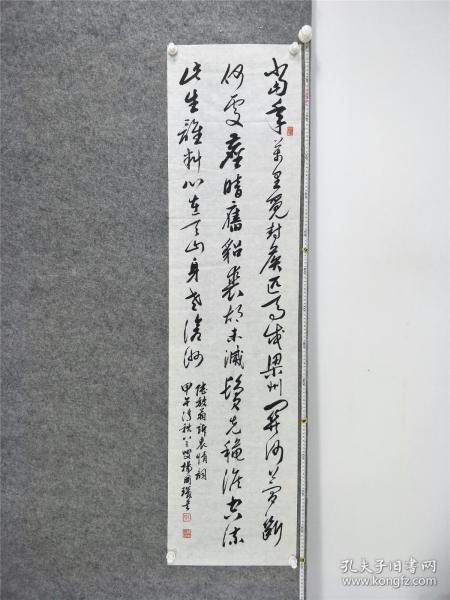 当年万里觅封侯匹马戍梁州关河梦断
何处尘暗旧貂裘胡未灭鬓先秋泪空流
此生谁料心在天山身老沧洲
陆放翁诉衷情词
甲午清秋
孔夫子旧书网